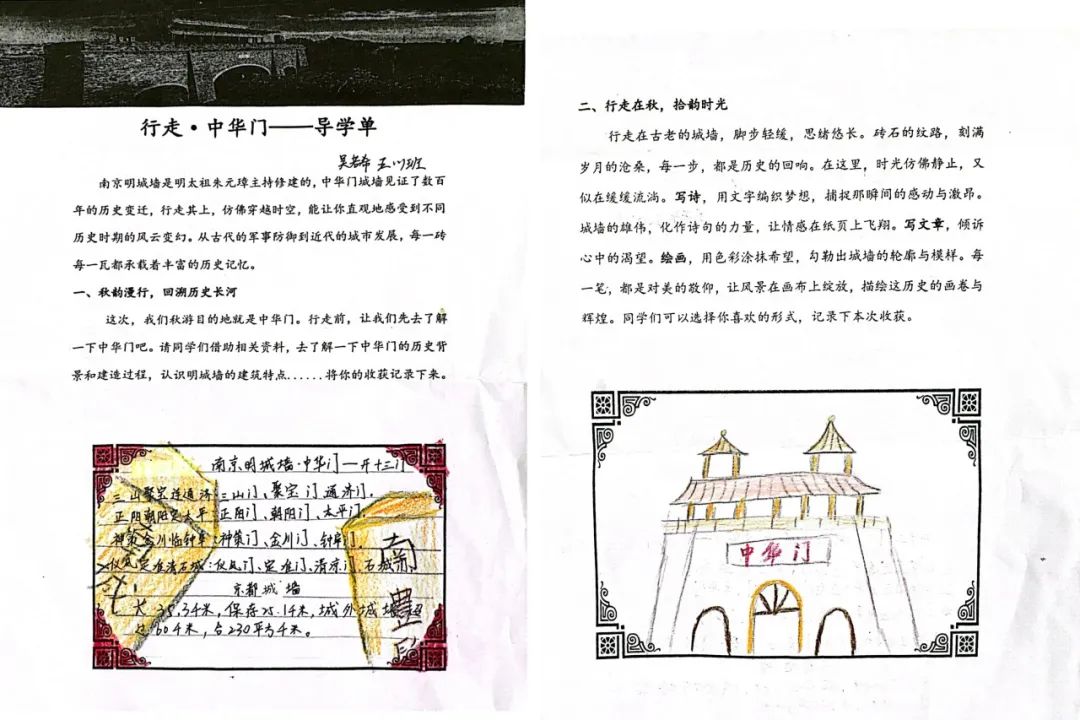 行走·中华门——导学单
南京明城墙是明太祖朱元璋主持修建的，中华门城墙见证了数百
年的历史变迁，行走其上，仿佛穿越时空，能让你直观地感受到不同
历史时期的风云变幻。从古代的军事防御到近代的城市发展，每一砖
每一瓦都承载着丰富的历史记忆。
一、秋韵漫行，回溯历史长河
这次，我们秋游目的地就是中华门。行走前，让我们先去了解
一下中华门吧。请同学们借助相关资料，去了解一下中华门的历史背
景和建造过程，认识明城墙的建筑特点......将你的收获记录下来。
南京明城墙·中华门—开十三门
三山聚宝连通济：三山门、聚宝门、通济门，
正阳朝阳定太平：正阳门、朝阳门、太平门，
神策金川临钟阜：神策门、金川门、钟阜门，
仪凤定淮清石城：仪凤门、定淮门、清凉门、石城
京都城墙
长35.3千米，保存25.1千米，城外城墙超
过60千米，合230平方千米。
南
豊
二、行走在秋，拾韵时光
行走在古老的城墙，脚步轻缓，思绪悠长。砖石的纹路，刻满
岁月的沧桑，每一步，都是历史的回响。在这里，时光仿佛静止，又
似在缓缓流淌。写诗，用文字编织梦想，捕捉那瞬间的感动与激昂。
城墙的雄伟，化作诗句的力量，让情感在纸页上飞翔。写文章，倾诉
心中的渴望。绘画，用色彩涂抹希望，勾勒出城墙的轮廓与模样。每
一笔，都是对美的敬仰，让风景在画布上绽放，描绘这历史的画卷与
辉煌。同学们可以选择你喜欢的形式，记录下本次收获。
中华门